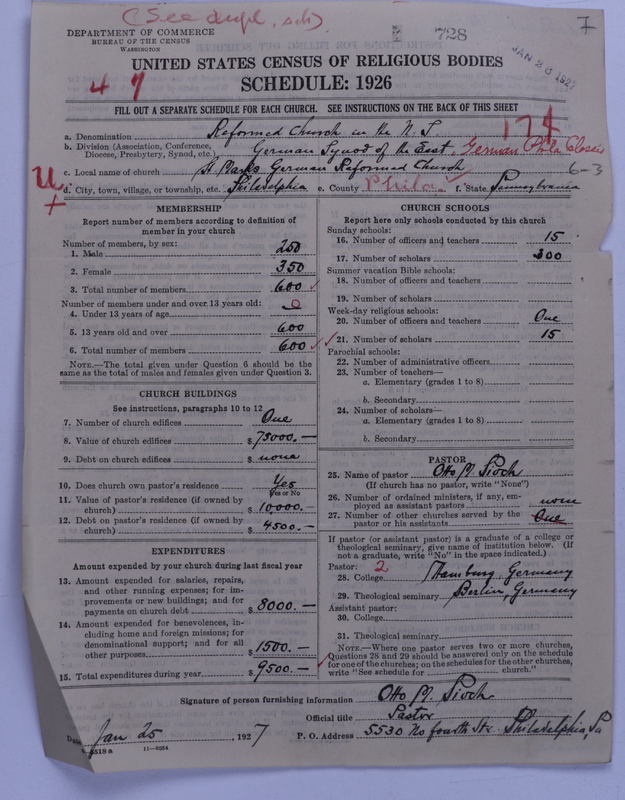 (See dupl. sch)
7
DEPARTMENT OF COMMERCE
BUREAU OF THE CENSUS
WASHINGTON
728
JAN 26 1927
UNITED STATES CENSUS OF RELIGIOUS BODIES
SCHEDULE: 1926
4 7
FILL OUT A SEPARATE SCHEDULE FOR EACH CHURCH. SEE INSTRUCTIONS ON THE BACK OF THIS SHEET
174
a. Denomination Reformed Church in the U. S.
b. Division (Association, Conference, Diocese, Presbytery, Synod, etc.) German Synod of the East, German Phila Classis
c. Local name of church St. Marks German Reformed Church 6-3
d. City, town, village, or township, etc. Philadelphia e. County Phila. f. State Pennsylvania
MEMBERSHIP
Report number of members according to definition of
member in your church
Number of members, by sex:
1. Male 250
2. Female 350
3. Total number of members 600
Number of members under and over 13 years old:
4. Under 13 years of age 0
5. 13 years old and over 600
6. Total number of members 600
NOTE.—The total given under Question 6 should be
same as the total of males and females given under Question 3.
CHURCH BUILDINGS
See instructions, paragraphs 10 to 12
7. Number of church edifices One
8. Value of church edifices $ 75000.—
9. Debt on church edifices $ none
10. Does church own pastor's residence Yes
Yes or No
11. Value of pastor's residence (if owned by
church) $ 10,000.—
12. Debt on pastor's residence (if owned by
church) $ 4500.—
EXPENDITURES
Amount expended by your church during last fiscal year
13. Amount expended for salaries, repairs,
and other running expenses; for im-
provements or new buildings; and for
payments on church debt $ 8000.—
14. Amount expended for benevolences, in-
cluding home and foreign missions; for
denominational support; and for all
other purposes $ 1500.—
15. Total expenditures during year $ 9500.—
CHURCH SCHOOLS
Report here only schools conducted by this church
Sunday schools:
16. Number of officers and teachers 15
17. Number of scholars 300
Summer vacation Bible schools:
18. Number of officers and teachers
19. Number of scholars
Week-day religious schools:
20. Number of officers and teachers One
21. Number of scholars 15
Parochial schools:
22. Number of administrative officers
23. Number of teachers—
a. Elementary (grades 1 to 8)
b. Secondary
24. Number of scholars—
a. Elementary (grades 1 to 8)
b. Secondary
PASTOR
25. Name of pastor Otto M. Pioch
(If church has no pastor, write "None")
26. Number of ordained ministers, if any, em-
ployed as assistant pastors none
27. Number of other churches served by the
pastor or his assistants One
If pastor (or assistant pastor) is a graduate of a college or
theological seminary, give name of institution below. (If
not a graduate, write "No" in the space indicated.)
Pastor: 2
28. College Hamburg, Germany
29. Theological seminary Berlin, Germany
Assistant pastor:
30. College
31. Theological seminary
NOTE.—Where one pastor serves two or more churches,
Questions 28 and 29 should be answered only on the schedule
for one of the churches; on the schedules for the other churches,
write "See schedule for church."
Signature of person furnishing information Otto M. Pioch
Official title Pastor
Date Jan 25 1927 P. O. Address 5530 No fourth Str. Philadelphia, Pa
8518 a 11—8054